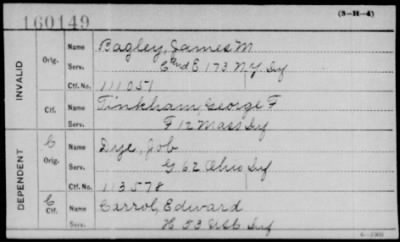 160149
(3-H-4)
INVALID
Orig.
Name Bagley, James M
Serv. C and E 173 N.Y. Inf
Ctf. No. 111051
Ctf.
Name Tinkham, George F
Serv. F 12 Mass Inf
DEPENDENT
C
Orig.
Name Dye, Job
Serv. G 62 Ohio Inf
Ctf. No. 113578
C
Ctf.
Name Carrol, Edward
Serv. H 53 Ills Inf